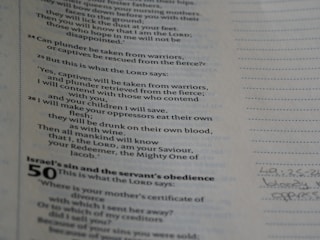 foster fathers,
queens your nursing mothers.
They will bow down before you with their
faces to the ground;
they will lick the dust at your feet.
Then you will know that I am the LORD;
those who hope in me will not be
disappointed."
24 Can plunder be taken from warriors,
or captives be rescued from the fierce?
25 But this is what the LORD says:
"Yes, captives will be taken from warriors,
and plunder retrieved from the fierce;
I will contend with those who contend
with you,
and your children I will save.
26 I will make your oppressors eat their own
flesh;
they will be drunk on their own blood,
as with wine.
Then all mankind will know
that I, the LORD, am your Saviour,
your Redeemer, the Mighty One of
Jacob."
Israel's sin and the servant's obedience
50 This is what the LORD says:
"Where is your mother's certificate of
divorce
with which I sent her away?
Or to which of my creditors
did I sell you?
Because of your sins you were sold;
because of your